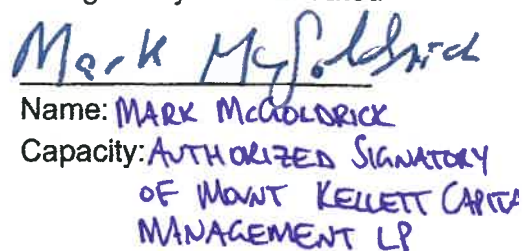 Mark McGoldrick
Name: MARK McGOLDRICK
Capacity: AUTHORIZED SIGNATORY
OF MOUNT KELLETT CAPITA
MANAGEMENT LP